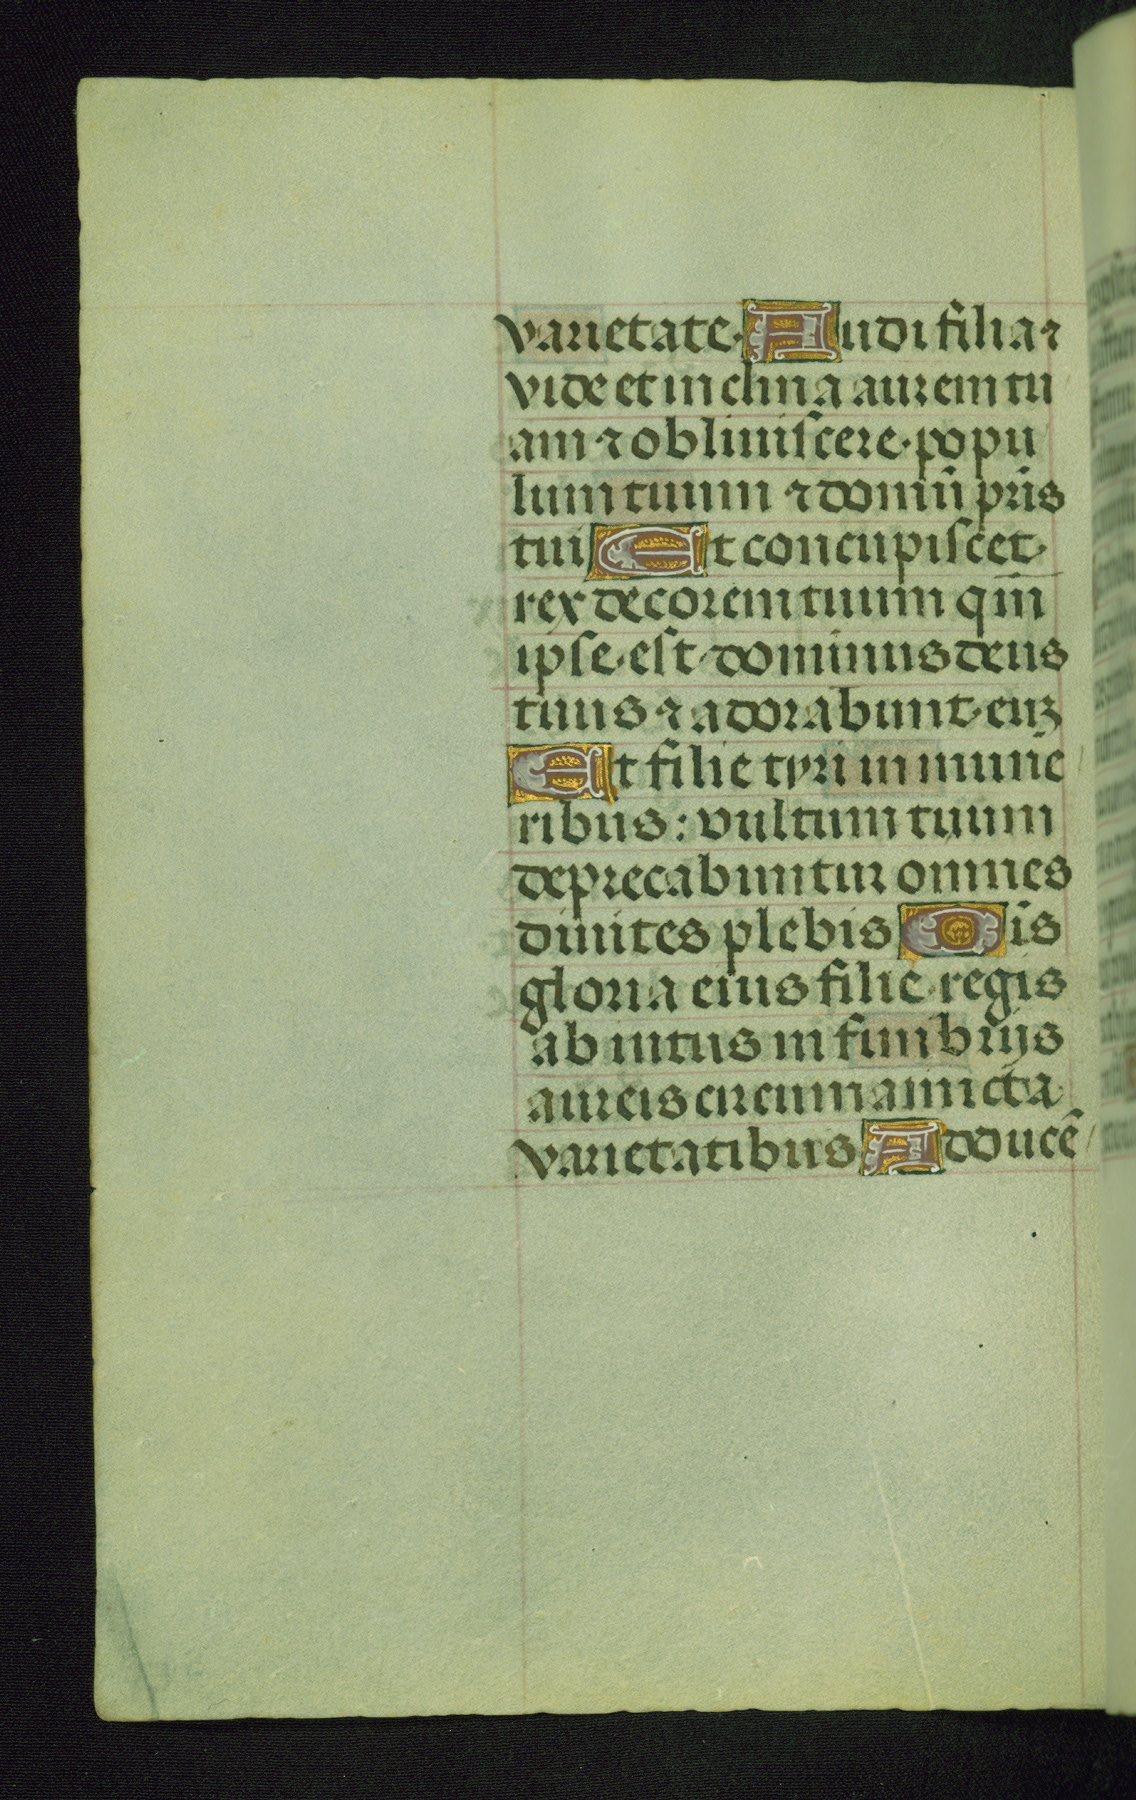 varietate. Audi filia ⁊
vide et inclina aurem tu
am ⁊ obliuiscere popu
lum tuum ⁊ domū pr̄is
tui Et concupiscet
rex decorem tuum qm̄
ipse est dominus deus
tuus ⁊ adorabunt euʒ
Et filie tyri in mune
ribus: vultum tuum
deprecabuntur omnes
diuites plebis Oīs
gloria eius filie regis
ab intus in fimbrijs
aureis circumamicta
varietatibus Adducē